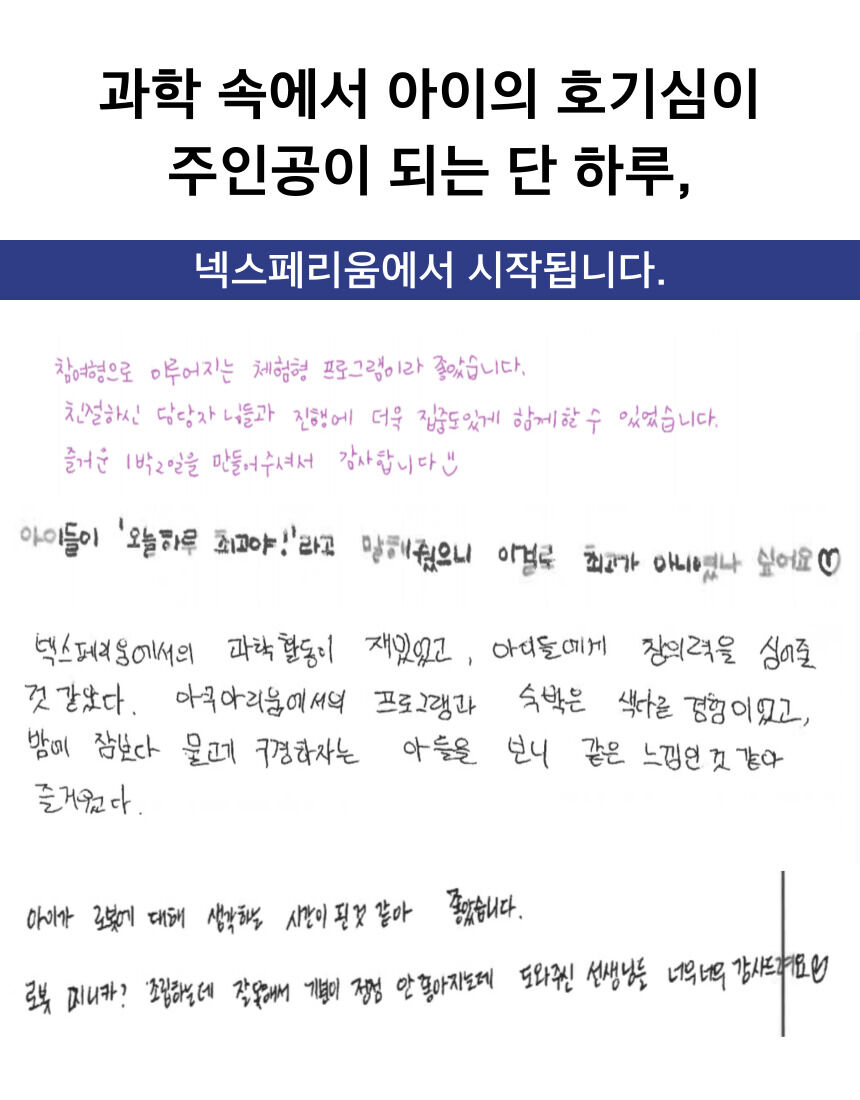 과학 속에서 아이의 호기심이
주인공이 되는 단 하루,
넥스페리움에서 시작됩니다.
참여형으로 이루어지는 체험형 프로그램이라 좋았습니다.
친절하신 담당자 님들과 진행에 더욱 집중도있게 함께할 수 있었습니다.
즐거운 1박2일을 만들어주셔서 감사합니다
아이들이 '오늘하루 최고야!'라고 말해줬으니 이벌루 최고가 아니였나 싶어요♡
넥스페리움에서의 과학활동이 재밌었고, 아이들에게 창의력을 심어줄
것 같았다. 아쿠아리움에서의 프로그램과 숙박은 색다른 경험이였고,
밤에 잠보다 물고기 구경하자는 아들을 보니 같은 느낌인 것 같아
즐거웠다.
아이가 로봇에 대해 생각하는 시간이 된것 같아 좋았습니다.
로봇 미니카? 조립하는데 잘못해서 기분이 점점 안좋아지는데 도와주신 선생님들 너무너무 감사드려요♡